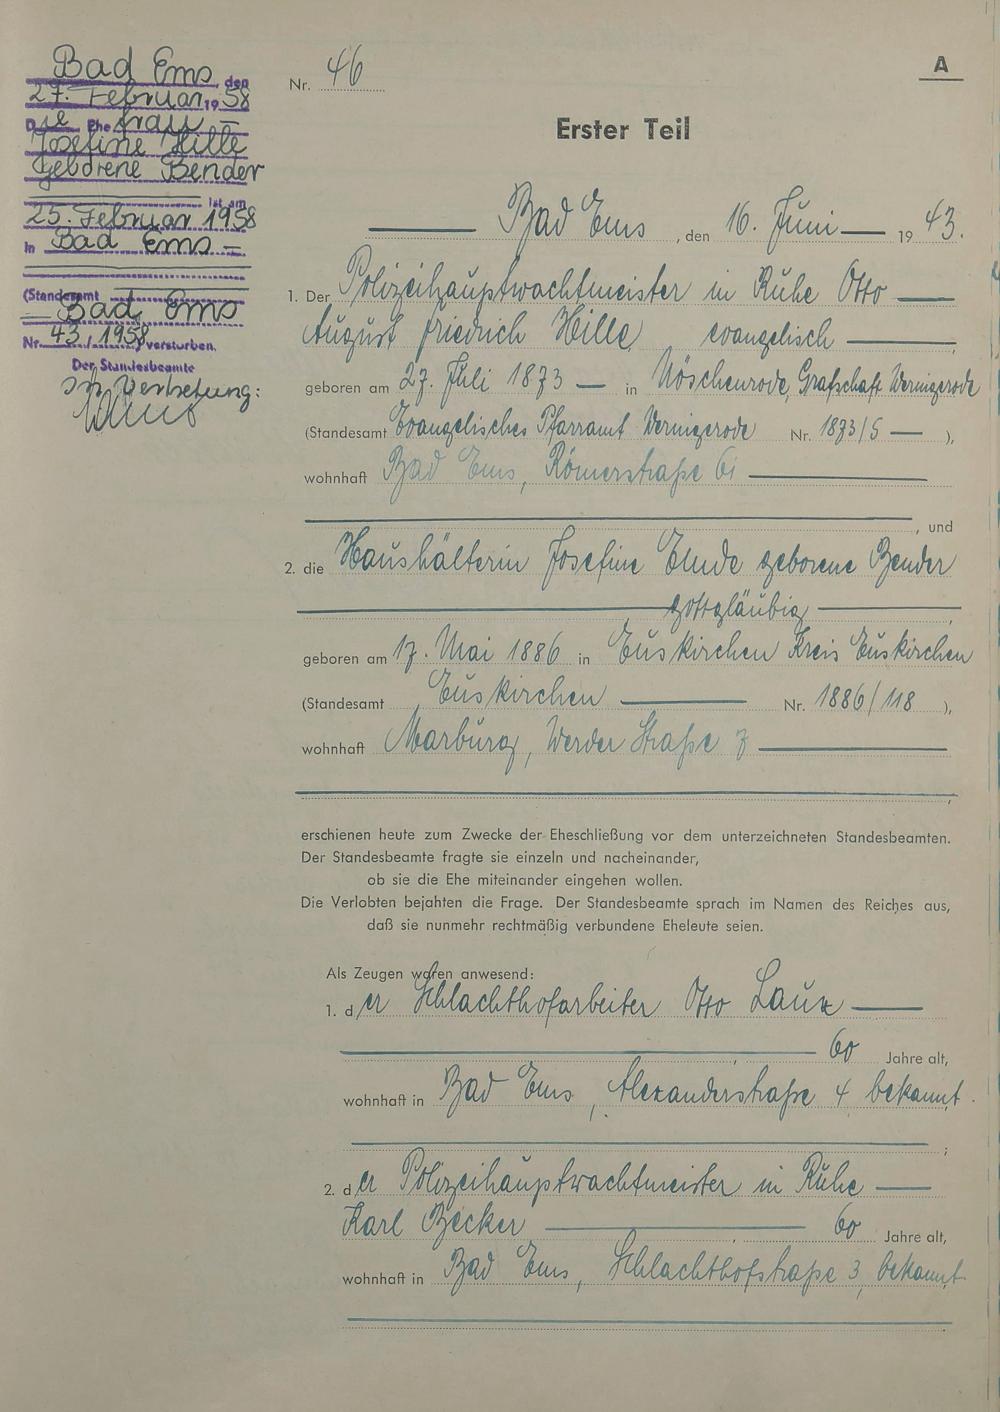 Bad Ems, den
27. Februar 1958
Die Ehefrau –
Josefine Hille
geborene Bender
ist am
25. Februar 1958
in Bad Ems –
(Standesamt
Bad Ems
Nr. 43/1958 verstorben.
Der Standesbeamte
In Vertretung:
A
Nr. 46
Erster Teil
Bad Ems, den 16. Juni 1943.
1. Der Polizeihauptwachtmeister in Ruhe Otto
August Friedrich Hille, evangelisch,
geboren am 27. Juli 1873 in Nöschenrode, Grafschaft Wernigerode
(Standesamt Evangelisches Pfarramt Wernigerode Nr. 1873/5 ),
wohnhaft Bad Ems, Römerstraße 61
, und
2. die Haushälterin Josefine Elude geborene Bender
gottgläubig
geboren am 17. Mai 1886 in Euskirchen Kreis Euskirchen
(Standesamt Euskirchen Nr. 1886/118 ),
wohnhaft Marburg, Werder Straße 7
erschienen heute zum Zwecke der Eheschließung vor dem unterzeichneten Standesbeamten.
Der Standesbeamte fragte sie einzeln und nacheinander,
ob sie die Ehe miteinander eingehen wollen.
Die Verlobten bejahten die Frage. Der Standesbeamte sprach im Namen des Reiches aus,
daß sie nunmehr rechtmäßig verbundene Eheleute seien.
Als Zeugen waren anwesend:
1. der Schlachthofarbeiter Otto Laux
, 60 Jahre alt,
wohnhaft in Bad Ems, Alexanderstraße 4 bekannt.
;
2. der Polizeihauptwachtmeister in Ruhe
Karl Becker , 60 Jahre alt,
wohnhaft in Bad Ems, Schlachthofstraße 3, bekannt.